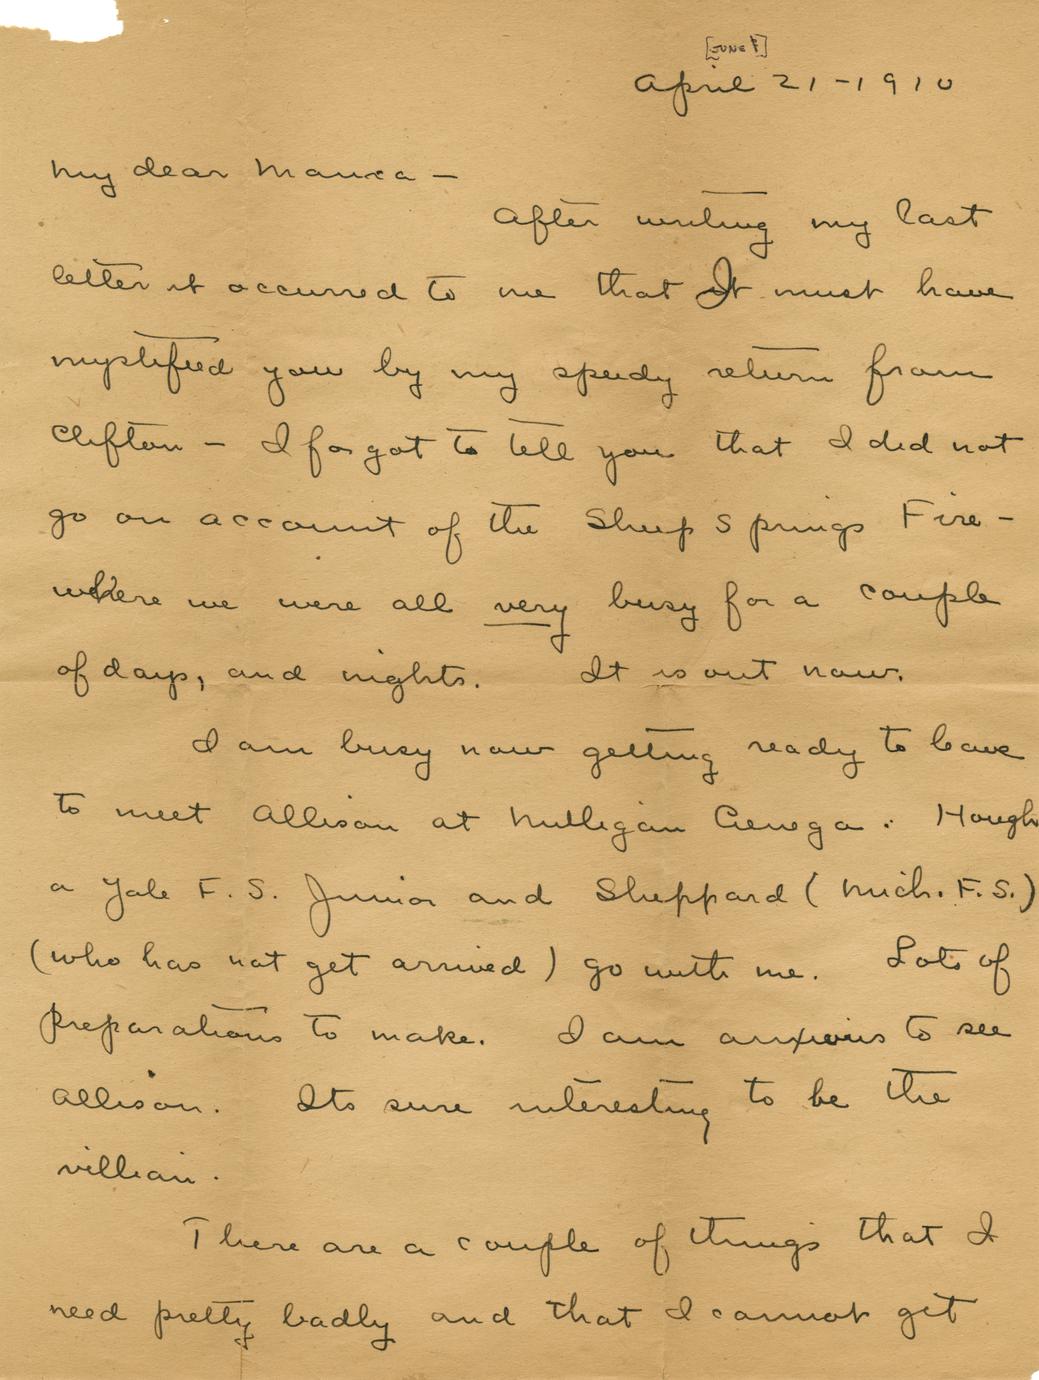 [JUNE ?]
April 21-1910
My dear Mama -
After writing my last
letter it occurred to me that I must have
mystified you by my speedy return from
Clifton - I forgot to tell you that I did not
go on account of the Sheep Springs Fire -
where we were all very busy for a couple
of days, and nights. It is out now.
I am busy now getting ready to leave
to meet Allison at Milligan Cienega. Hough
a Yale F. S. Junior and Sheppard (Mich. F. S.)
(who has not get arrived) go with me. Lots of
preparations to make. I am anxious to see
Allison. Its sure interesting to be the
villian.
There are a couple of things that I
need pretty badly and that I cannot get